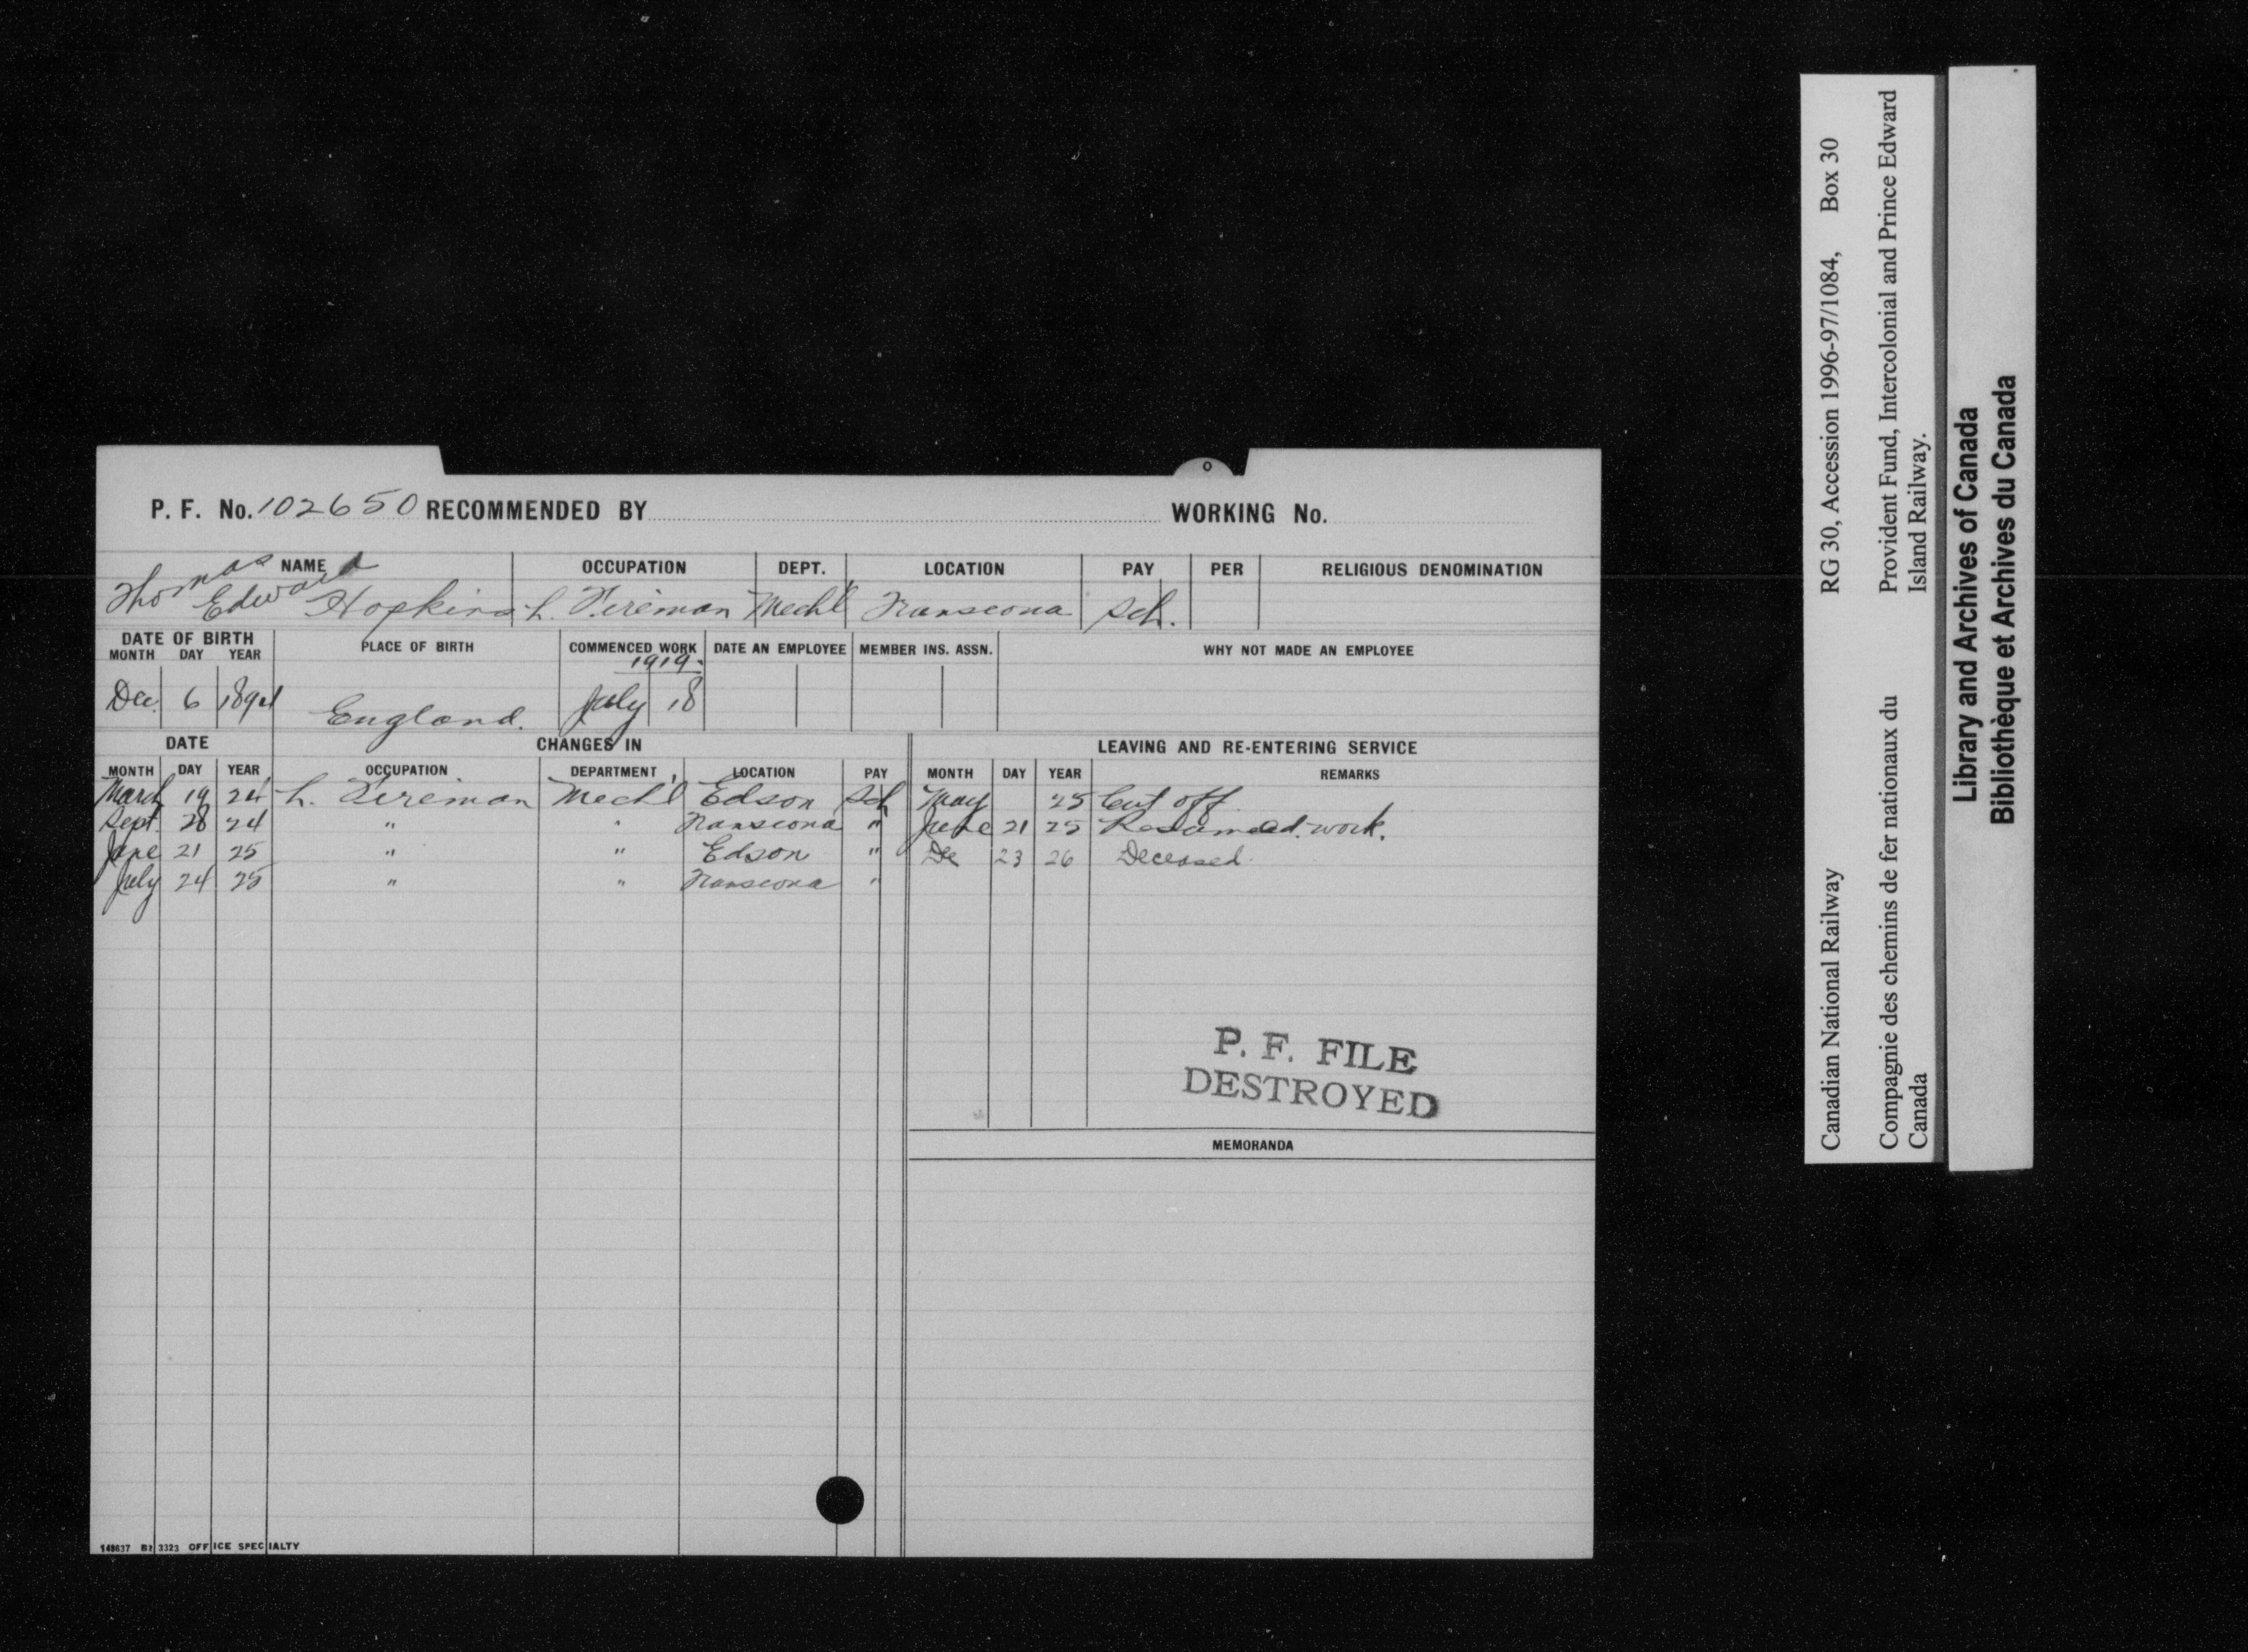 P. F. No. 102650 RECOMMENDED BY WORKING No.
NAME OCCUPATION DEPT. LOCATION PAY PER RELIGIOUS DENOMINATION
Thomas Edward Hopkins L. Fireman Mechl Transcona Sch.
DATE OF BIRTH PLACE OF BIRTH COMMENCED WORK DATE AN EMPLOYEE MEMBER INS. ASSN. WHY NOT MADE AN EMPLOYEE
MONTH DAY YEAR
1919.
Dec. 6 1894 England. July 18
DATE CHANGES IN LEAVING AND RE-ENTERING SERVICE
MONTH DAY YEAR OCCUPATION DEPARTMENT LOCATION PAY MONTH DAY YEAR REMARKS
March 19 24 L. Fireman Mechl Edson Sch May 25 Cut off
Sept. 28 24 " " Transcona " June 21 25 Resumed work.
June 21 25 " " Edson " De 23 26 Deceased.
July 24 25 " " Transcona "
P. F. FILE
DESTROYED
MEMORANDA
148637 B2 3323 OFFICE SPECIALTY
Canadian National Railway RG 30, Accession 1996-97/1084, Box 30
Compagnie des chemins de fer nationaux du Canada
Provident Fund, Intercolonial and Prince Edward Island Railway.
Library and Archives of Canada
Bibliothèque et Archives du Canada